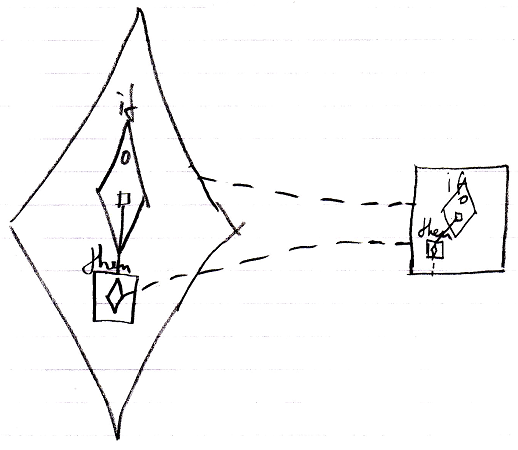 if
then
if
then